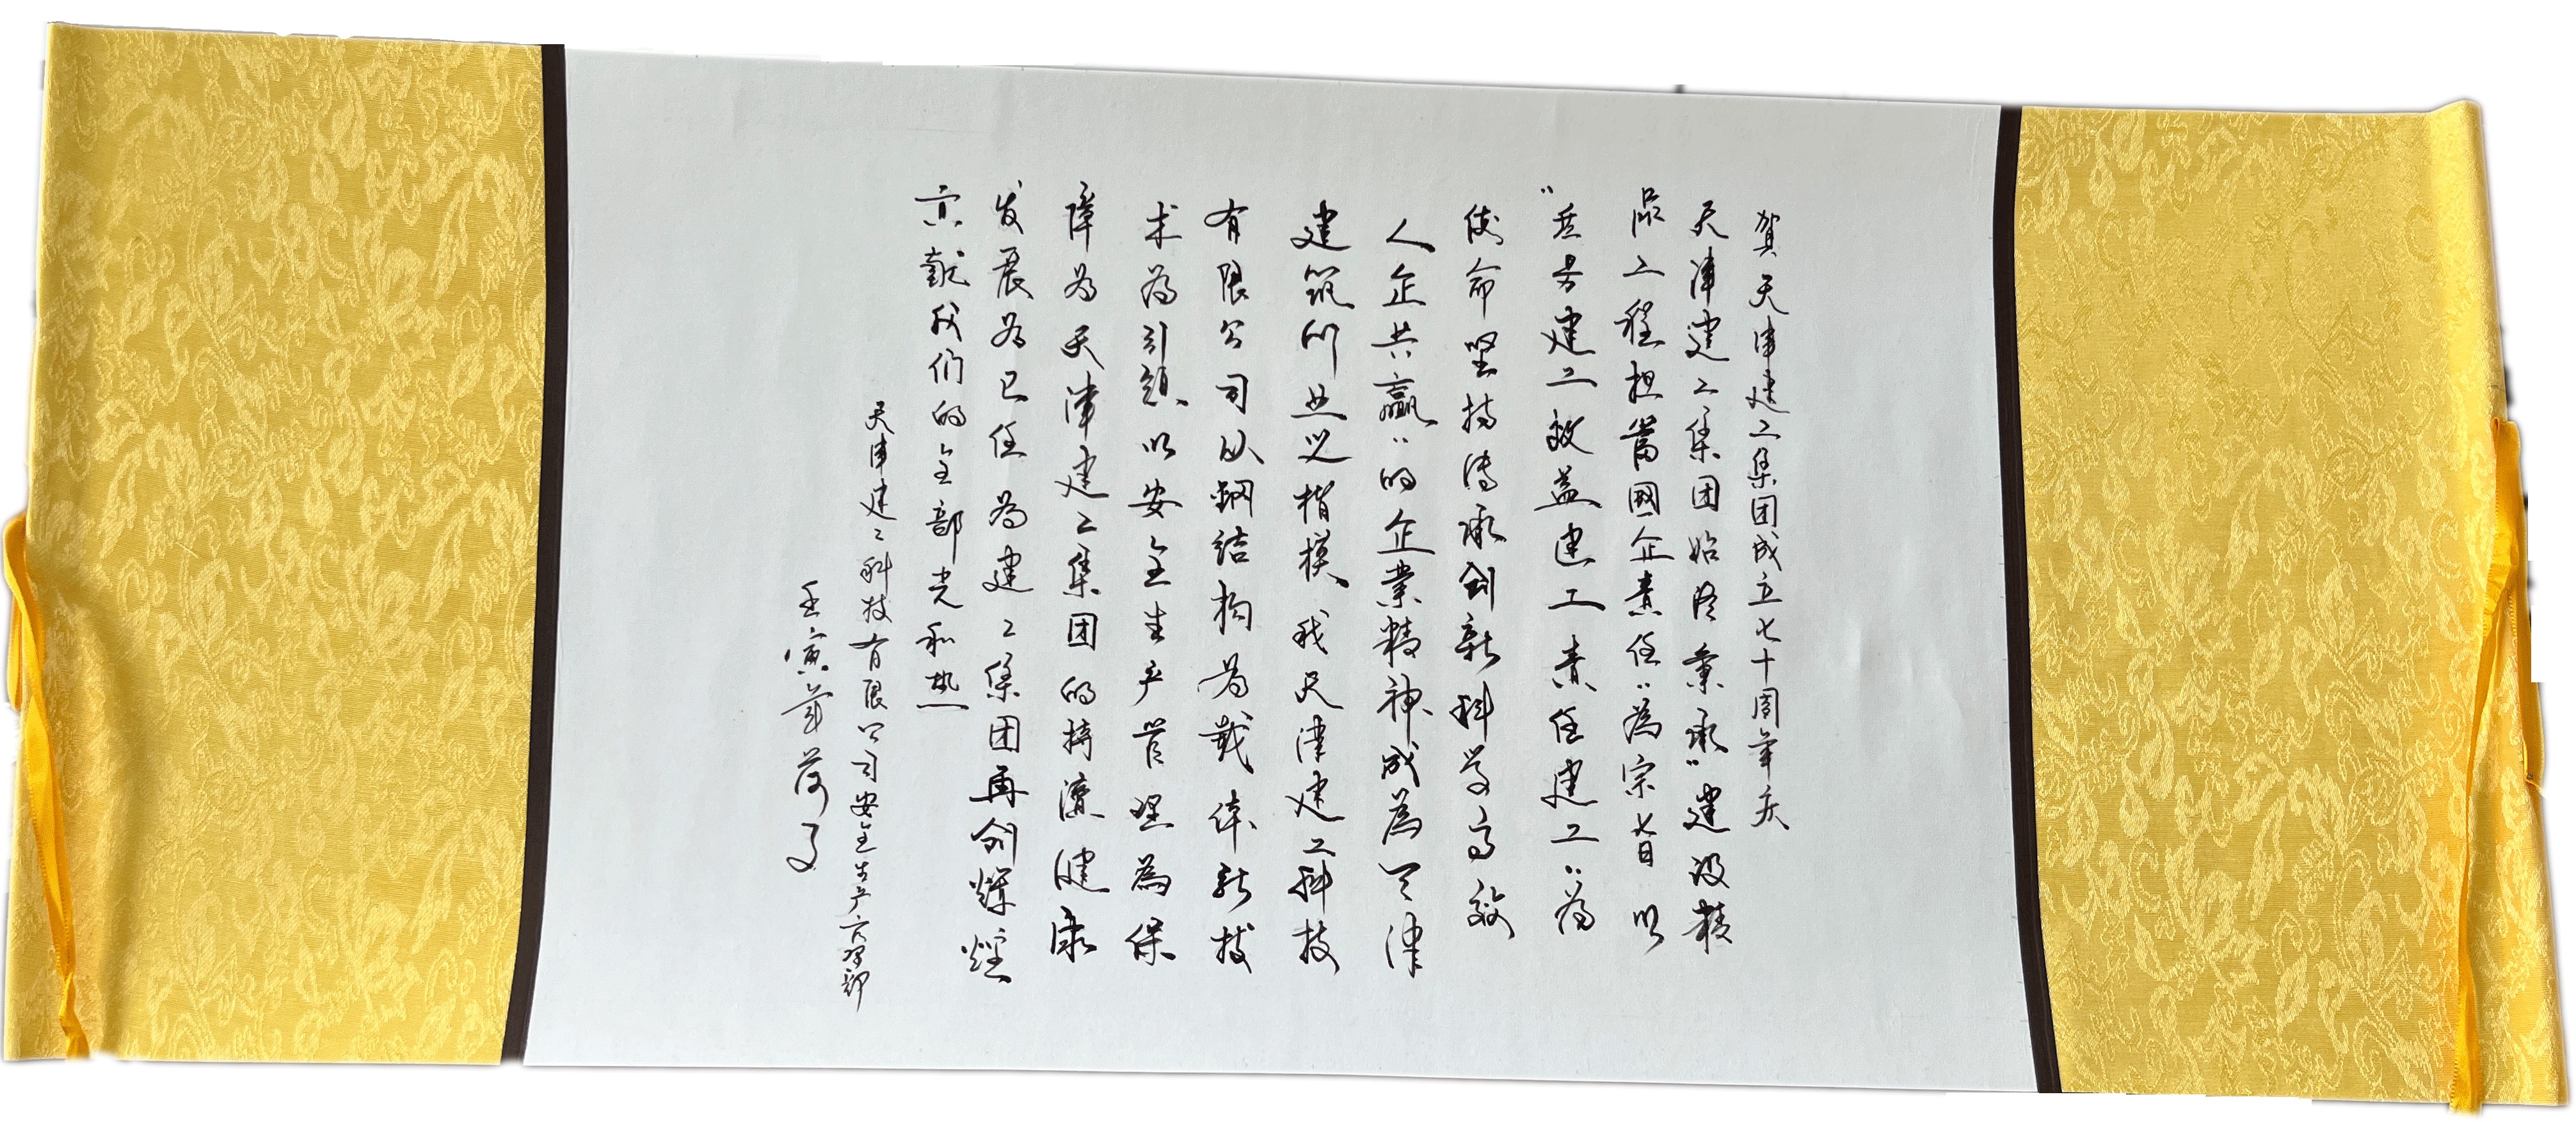 贺天津建工集团成立七十周年庆
天津建工集团始终秉承“建设精
品工程担当國企责任”為宗旨以
“建工效益建工责任建工”为
使命坚持传承创新科学高效
人企共赢”的企業精神成為天津
建筑行业之楷模、我天津建工科技
有限公司以钢结构为载体新技
术为引领、以安全生产管理為保
障为天津建工集团的持续健康
发展为己任为建工集团再创辉煌
贡献我们的全部光和热
天津建工科技有限公司安全生产管理部
壬寅年荷月